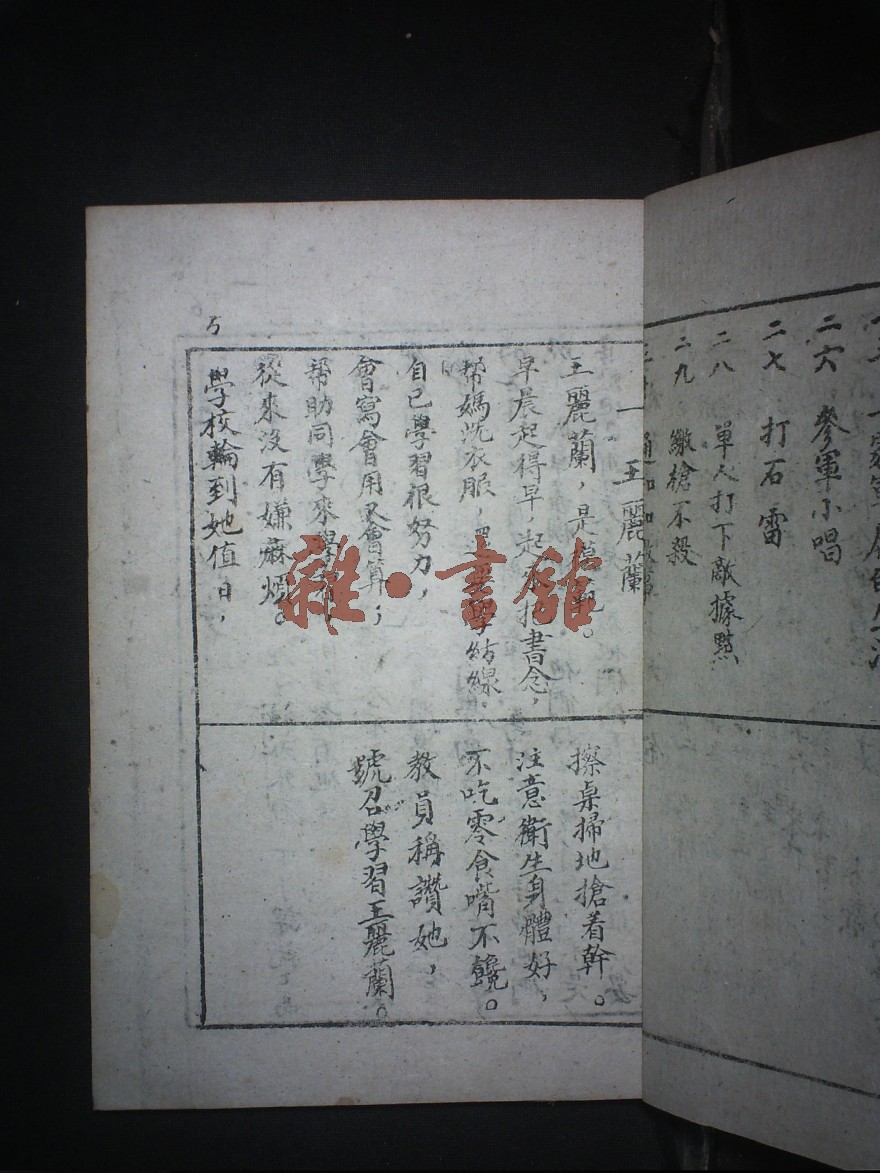 二六 參軍小唱
二七 打石雷
二八 單人打下敵據點
二九 繳槍不殺
一 王麗蘭
王麗蘭，是
早晨起得早，起 書念，
帮媽洗衣服， 學紡線，
自己學習很努力，
會寫會用又會算；
帮助同學來學習，
從來沒有嫌麻煩。
學校輪到她值日，
擦桌掃地搶着幹。
注意衛生身體好，
不吃零食嘴不饞。
教員稱讚她，
號召學習王麗蘭。
5
雜·書館